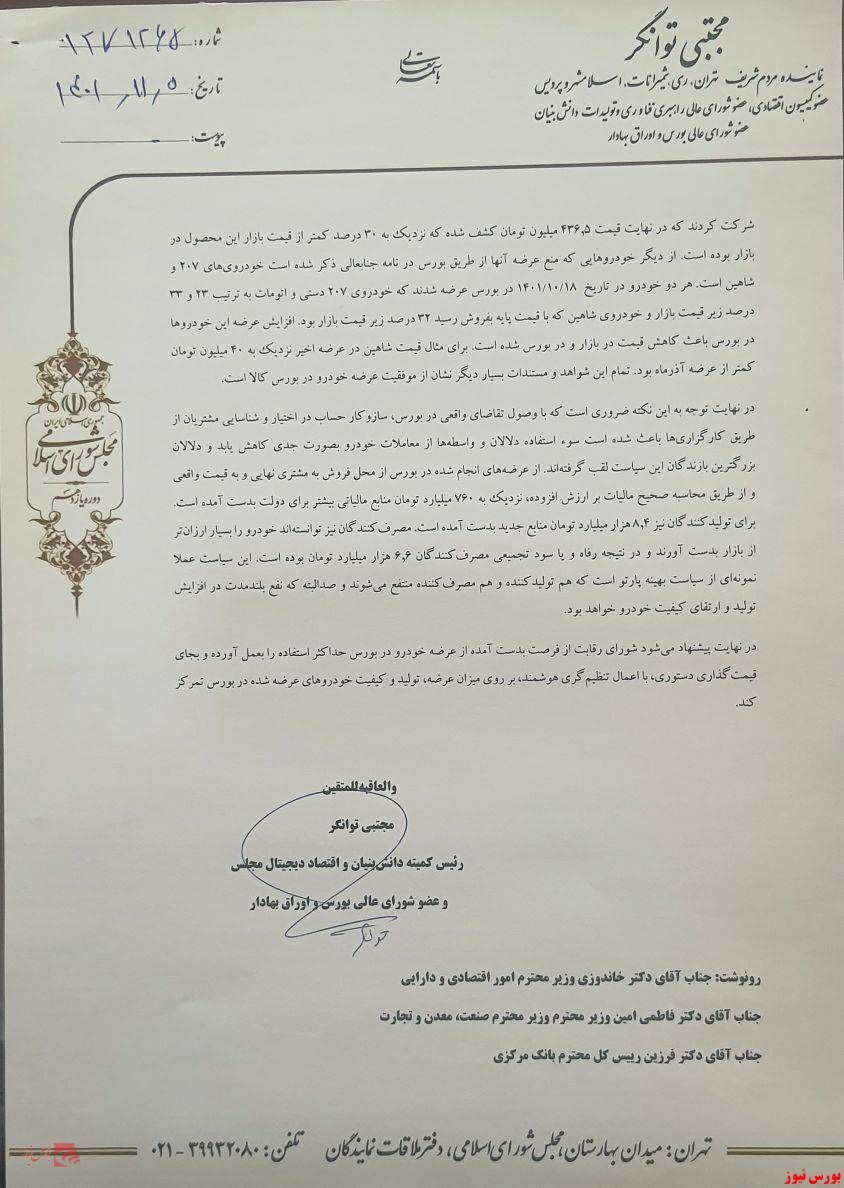 مجتبی توانگر
نماینده مردم شریف تهران، ری، شمیرانات، اسلامشهر و پردیس
عضو کمیسیون اقتصادی، عضو شورای عالی راهبری فناوری و تولیدات دانش بنیان
عضو شورای عالی بورس و اوراق بهادار
باسمه تعالی
شماره: ۱۲۷۱۲۶۵
تاریخ: ۱۴۰۱/۱۱/۰۵
پیوست:
شرکت کردند که در نهایت قیمت ۴۳۶٫۵ میلیون تومان کشف شده که نزدیک به ۳۰ درصد کمتر از قیمت بازار این محصول در
بازار بوده است. از دیگر خودروهایی که منع عرضه آنها از طریق بورس در نامه جنابعالی ذکر شده است خودروی‌های ۲۰۷ و
شاهین است. هر دو خودرو در تاریخ ۱۴۰۱/۱۰/۱۸ در بورس عرضه شدند که خودروی ۲۰۷ دستی و اتومات به ترتیب ۲۳ و ۳۳
درصد زیر قیمت بازار و خودروی شاهین که با قیمت پایه بفروش رسید ۳۲ درصد زیر قیمت بازار بود. افزایش عرضه این خودروها
در بورس باعث کاهش قیمت در بازار و در بورس شده است. برای مثال قیمت شاهین در عرضه اخیر نزدیک به ۴۰ میلیون تومان
کمتر از عرضه آذرماه بود. تمام این شواهد و مستندات بسیار دیگر نشان از موفقیت عرضه خودرو در بورس کالا است.
در نهایت توجه به این نکته ضروری است که با وصول تقاضای واقعی در بورس، سازوکار حساب در اختیار و شناسایی مشتریان از
طریق کارگزاری‌ها باعث شده است سوء استفاده دلالان و واسطه‌ها از معاملات خودرو بصورت جدی کاهش یابد و دلالان
بزرگترین بازندگان این سیاست لقب گرفته‌اند. از عرضه‌های انجام شده در بورس از محل فروش به مشتری نهایی و به قیمت واقعی
و از طریق محاسبه صحیح مالیات بر ارزش افزوده، نزدیک به ۷۶۰ میلیارد تومان منابع مالیاتی بیشتر برای دولت بدست آمده است.
برای تولیدکنندگان نیز ۸٫۴ هزار میلیارد تومان منابع جدید بدست آمده است. مصرف‌کنندگان نیز توانسته‌اند خودرو را بسیار ارزان‌تر
از بازار بدست آورند و در نتیجه رفاه و یا سود تجمیعی مصرف‌کنندگان ۶٫۶ هزار میلیارد تومان بوده است. این سیاست عملا
نمونه‌ای از سیاست بهینه پارتو است که هم تولیدکننده و هم مصرف‌کننده منتفع می‌شوند و صدالبته که نفع بلندمدت در افزایش
تولید و ارتقای کیفیت خودرو خواهد بود.
در نهایت پیشنهاد می‌شود شورای رقابت از فرصت بدست آمده از عرضه خودرو در بورس حداکثر استفاده را بعمل آورده و بجای
قیمت‌گذاری دستوری، با اعمال تنظیم‌گری هوشمند، بر روی میزان عرضه، تولید و کیفیت خودروهای عرضه شده در بورس تمرکز
کند.
جمهوری اسلامی ایران
مجلس شورای اسلامی
دوره یازدهم
والعاقبه‌للمتقین
مجتبی توانگر
رئیس کمیته دانش‌بنیان و اقتصاد دیجیتال مجلس
و عضو شورای عالی بورس و اوراق بهادار
رونوشت: جناب آقای دکتر خاندوزی وزیر محترم امور اقتصادی و دارایی
جناب آقای دکتر فاطمی امین وزیر محترم وزیر محترم صنعت، معدن و تجارت
جناب آقای دکتر فرزین رییس کل محترم بانک مرکزی
تهران: میدان بهارستان، مجلس شورای اسلامی، دفتر ملاقات نمایندگان تلفن: ۳۹۹۳۲۰۸۰ - ۰۲۱
بورس نیوز